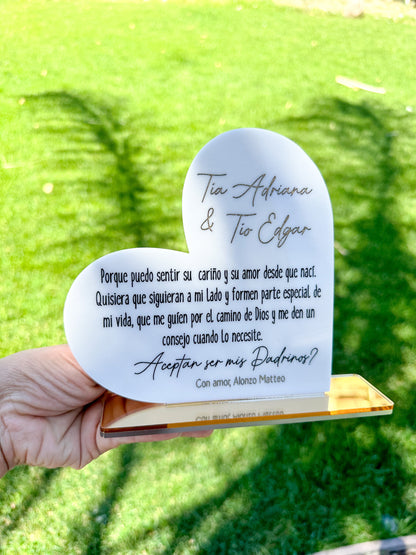 Tia Adriana
& Tio Edgar
Porque puedo sentir su cariño y su amor desde que nací.
Quisiera que siguieran a mi lado y formen parte especial de
mi vida, que me guíen por el camino de Dios y me den un
consejo cuando lo necesite.
Aceptan ser mis Padrinos?
Con amor, Alonzo Matteo